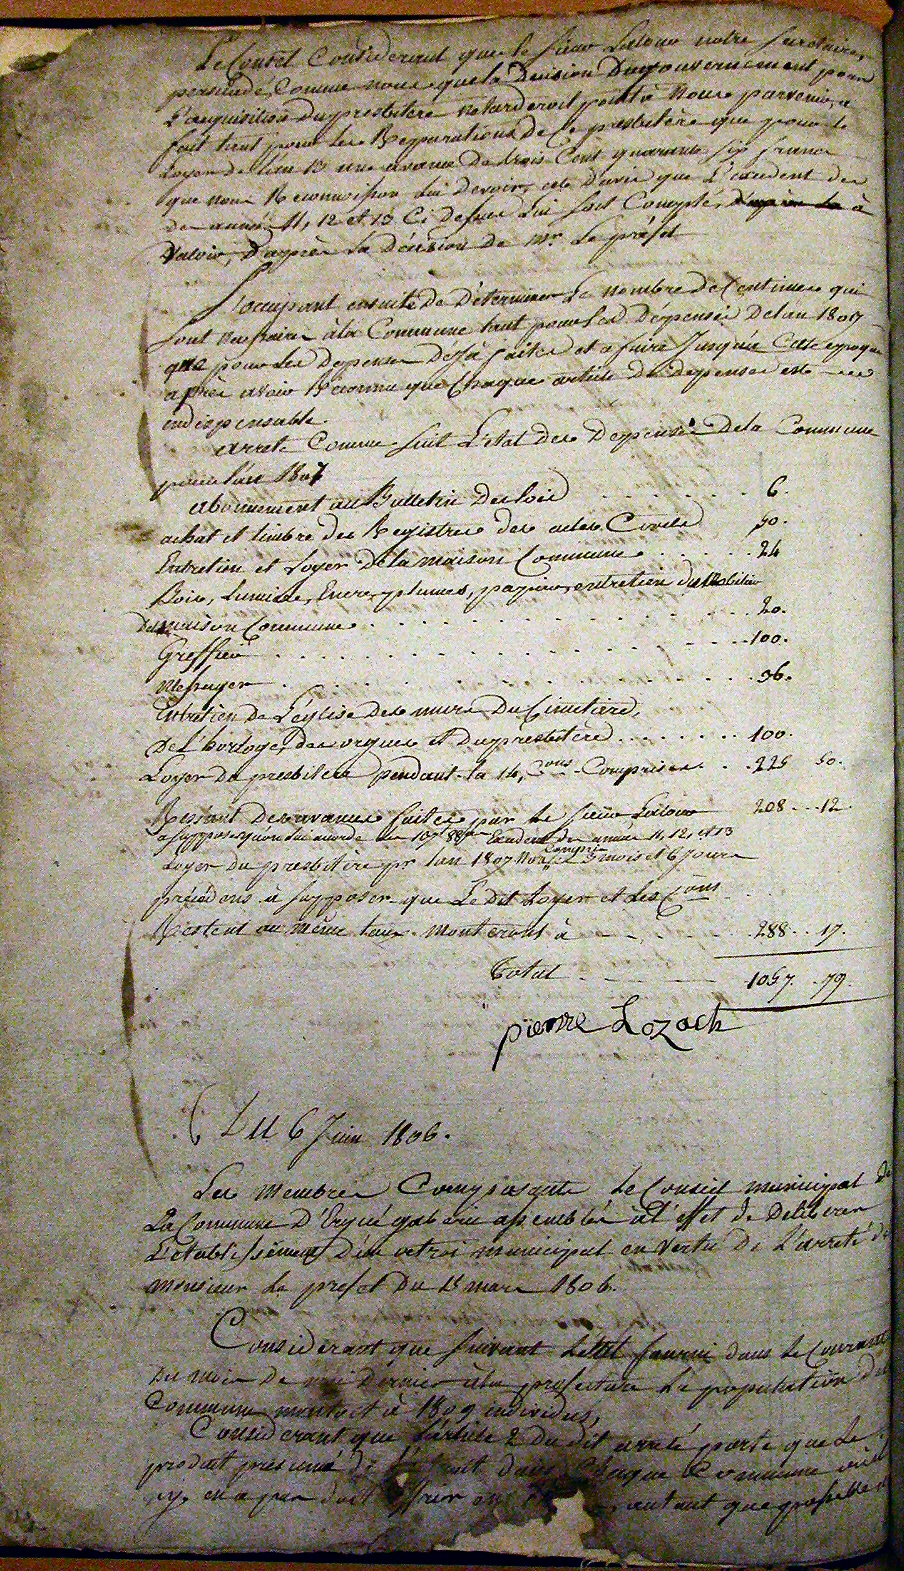 Le Conseil Considerant que le sieur Lalour notre
persuadé, Comme nous que la Decision Du gouvernement pour
L'acquisition Du presbitère Retarderoit point à Nous parvenir, a
fait tant pour Les Repparations De Ce presbitère que pour le
Loyer de l'an 13 une avance De trois Cent quarante six francs
que nous Reconnoisson Lui Devoir, este D'avis que L'excedent des
des années 11, 12 et 13 Ci dessus Lui soit Compté, à
Valoir, D'après La Décision de Mr Le préfet
S'occupant ensuite De Déterminer Le nombre De Centimes qui
sont Nécessaires à la Commune tant pour Les Depenses De l'an 1807
que pour Les Depenses Déjà faites et a faire Jusqu'à Cette epoque
après avoir Reconnu que Chaque article De Depenses est
indispensable
arrete Comme suit L'etat Des Depenses De la Commune
pour l'an 1807
abonnement au Bulletin Des Lois . . . . . . . . 6.
achat et timbre Des Registres des actes Civils 50.
Entretien et Loyer De la maison Commune . . . . . . 24
Bois, Lumiere, Encre, plumes, papier, entretien du Mobilier
De maison Commune . . . . . . . . . . 20.
Greffier . . . . . . . . . . . 100.
Messager . . . . . . . . . . . 36.
Entretien De L'église Des murs Du Cimetière,
De L'horloge, des orgues et Du presbitère . . . . . . . . 100.
Loyer Du presbitère pendant l'a 14, Cons Comprises . . 225 50.
Restant des avances faites par le Sieur Lalour 208 . . 12.
a supposer qu'on lui accorde Excedent Des années 11, 12, et 13
Loyer Du presbitère pr l'an 1807 Non Compris 3 mois et 6 Jours
précédens à supposer que Le Dit Loyer et Les Cons
Restent au même taux monteront à . . . . . 288 . . 17.
Total . . . . 1057. . 79.
pierre Lozach
Du 6 Juin 1806.
Les Membres Composants le Conseil municipal De
La Commune D'Ergué gaberic assemblés à l'effet De Deliberer
L'établissement D'un octroi municipal en Vertu De L'arreté De
Monsieur Le prefet Du 13 mars 1806.
Considerant que suivant L'etat fourni dans le Courant
Du mois De mai Dernier à la prefecture La population De
Commune montoit à 1809 individus,
Considerant que L'article 2 Du dit arreté porte que Le
produit présumé De L'octroi dans Chaque Commune
autant que possible